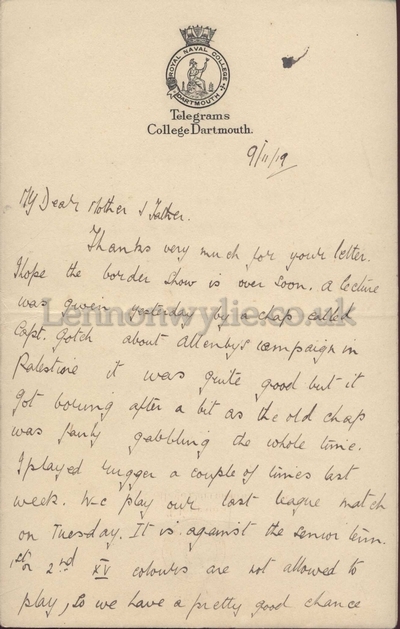 ROYAL NAVAL COLLEGE
DARTMOUTH
Telegrams
College Dartmouth.
9/11/19
My Dear Mother & Father.
Thanks very much for your letter.
I hope the border show is over soon. A lecture
was given yesterday by a chap called
Capt. Gotch about Allenbys campaign in
Palestine it was quite good but it
got boring after a bit as the old chap
was fairly gabbling the whole time.
I played rugger a couple of times last
week. We play our last league match
on Tuesday. It is against the senior term.
1st or 2nd XV colours are not allowed to
play, so we have a pretty good chance
Lennonwylie.co.uk